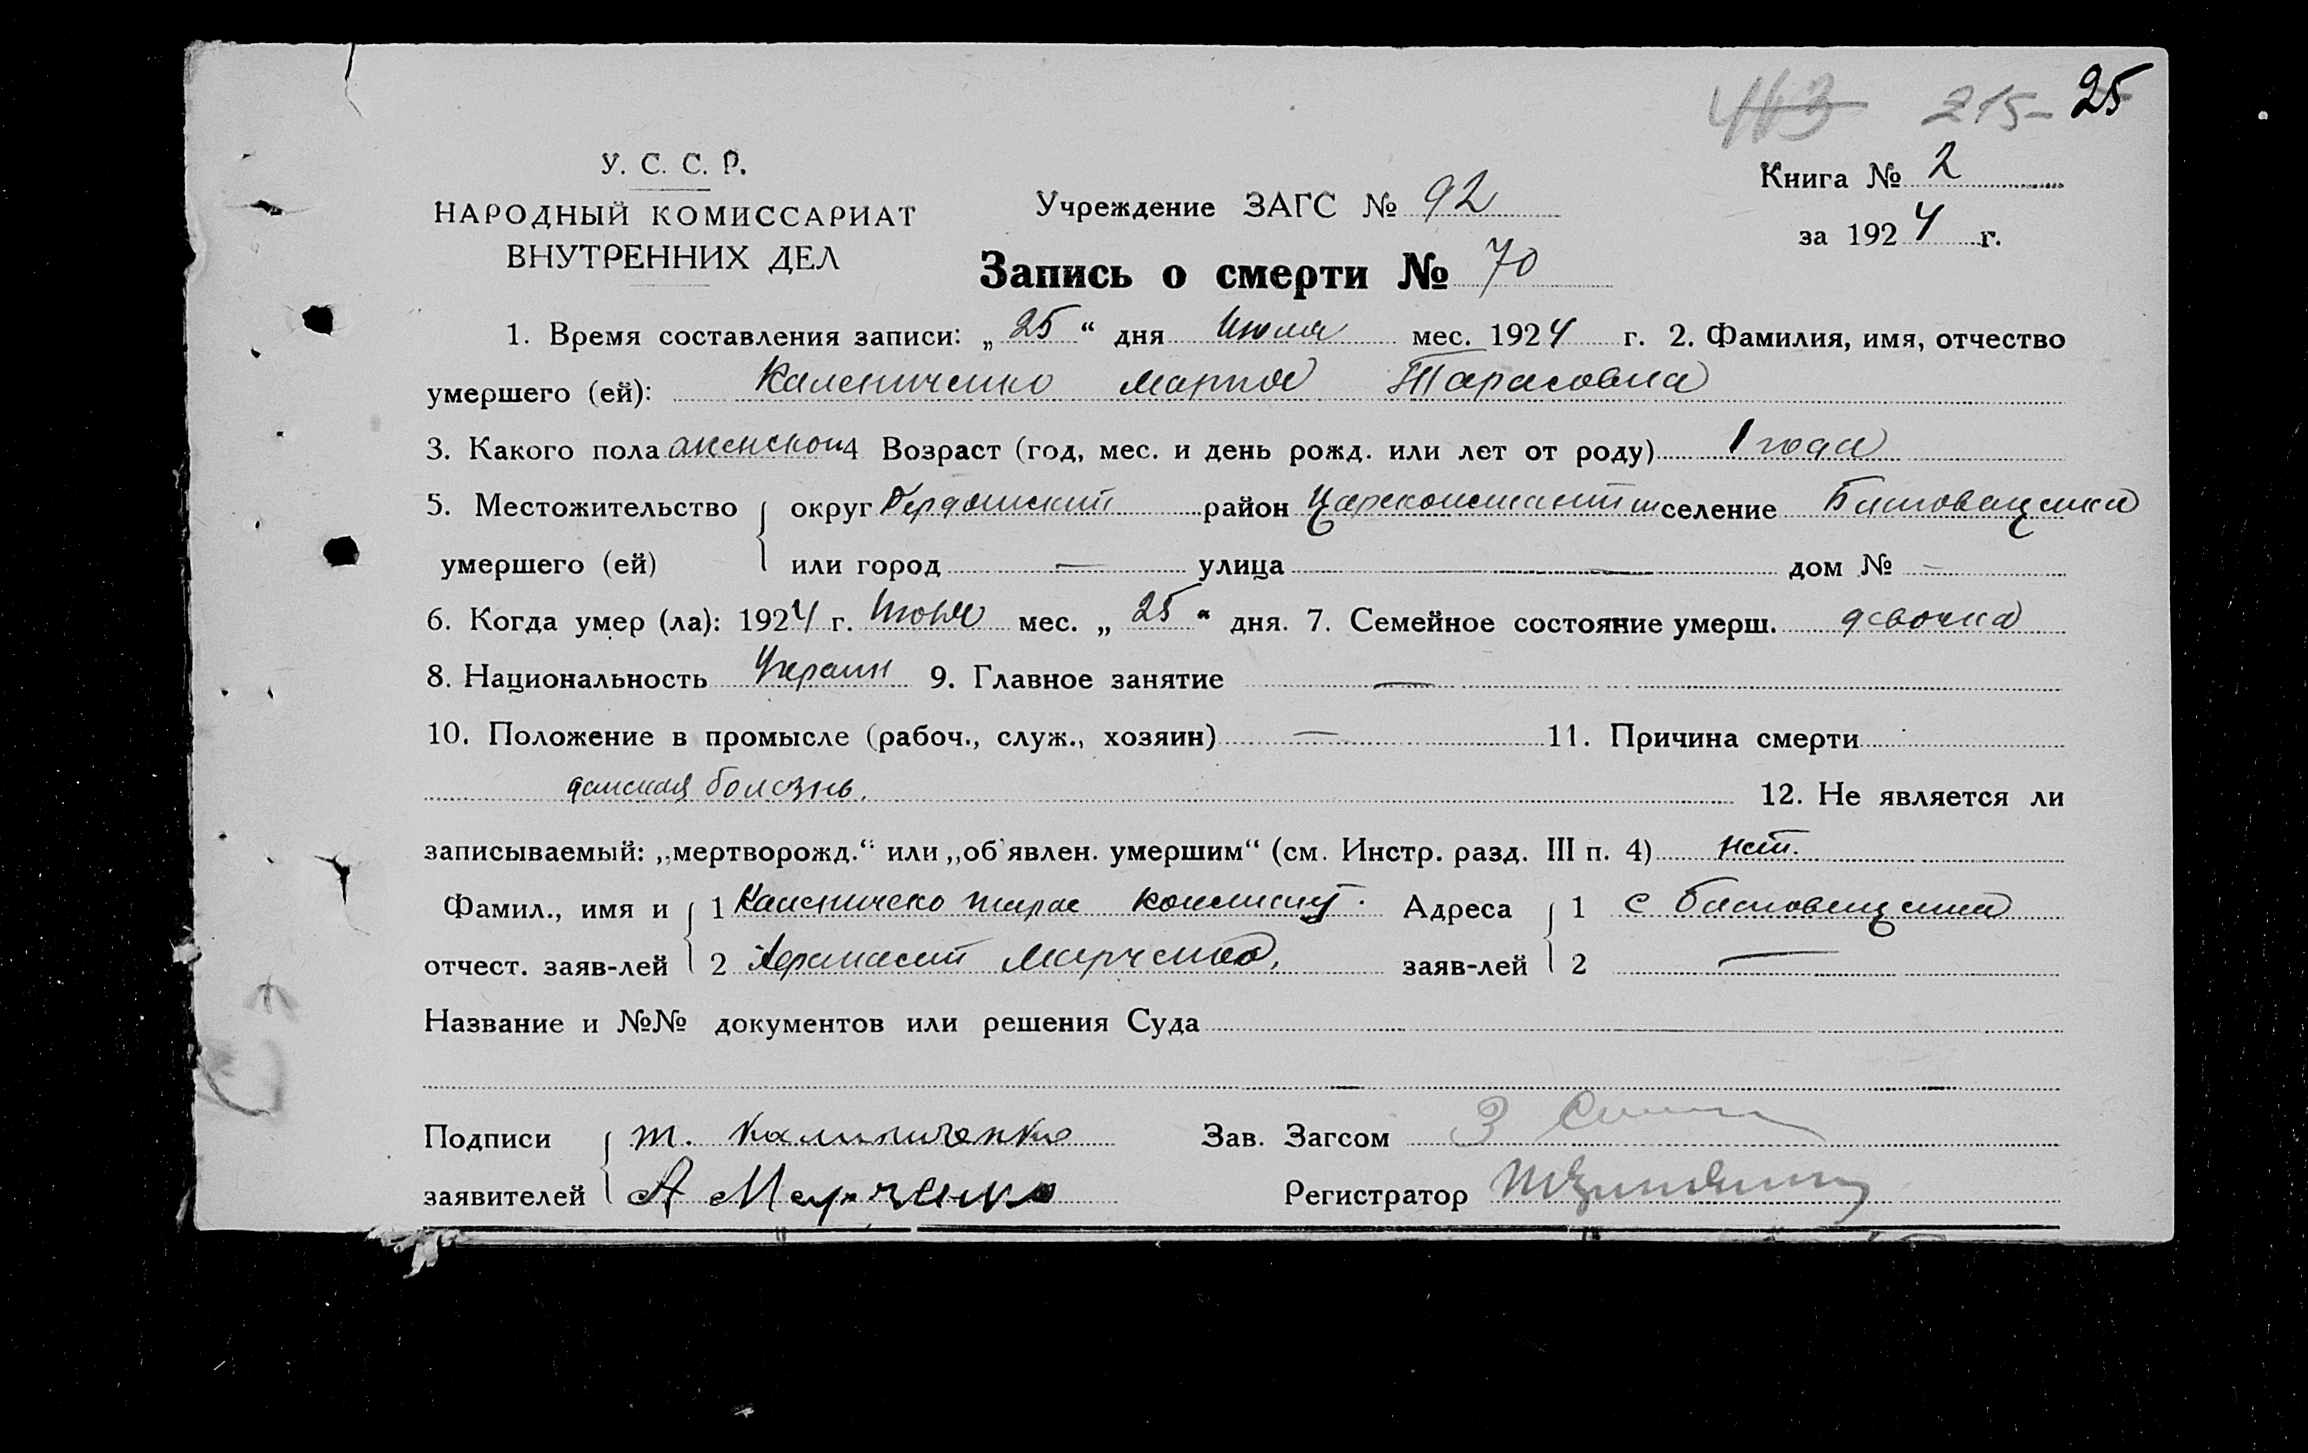 413 215- 25
У. С. С. Р.
НАРОДНЫЙ КОМИССАРИАТ
ВНУТРЕННИХ ДЕЛ
Учреждение ЗАГС № 92
Книга № 2
за 1924 г.
Запись о смерти № 70
1. Время составления записи: „25“ дня Июля мес. 1924 г. 2. Фамилия, имя, отчество
умершего (ей): Калениченко Марпа Тарасовна
3. Какого пола женской 4 Возраст (год, мес. и день рожд. или лет от роду) 1 года
5. Местожительство округ Бердянский район Цареконстантин селение
умершего (ей) или город — улица — дом № —
6. Когда умер (ла): 1924 г. мес. „25“ дня. 7. Семейное состояние умерш. девочка
8. Национальность Украин 9. Главное занятие —
10. Положение в промысле (рабоч., служ., хозяин) — 11. Причина смерти
детская болезнь. 12. Не является ли
записываемый: „мертворожд.“ или „об'явлен. умершим“ (см. Инстр. разд. III п. 4) нет.
Фамил., имя и 1 Тарас Адреса 1 с
отчест. заяв-лей 2 Афанасий Марченко, заяв-лей 2 —
Название и №№ документов или решения Суда
Подписи Т. Калиниченко Зав. Загсом
заявителей А Марченко Регистратор